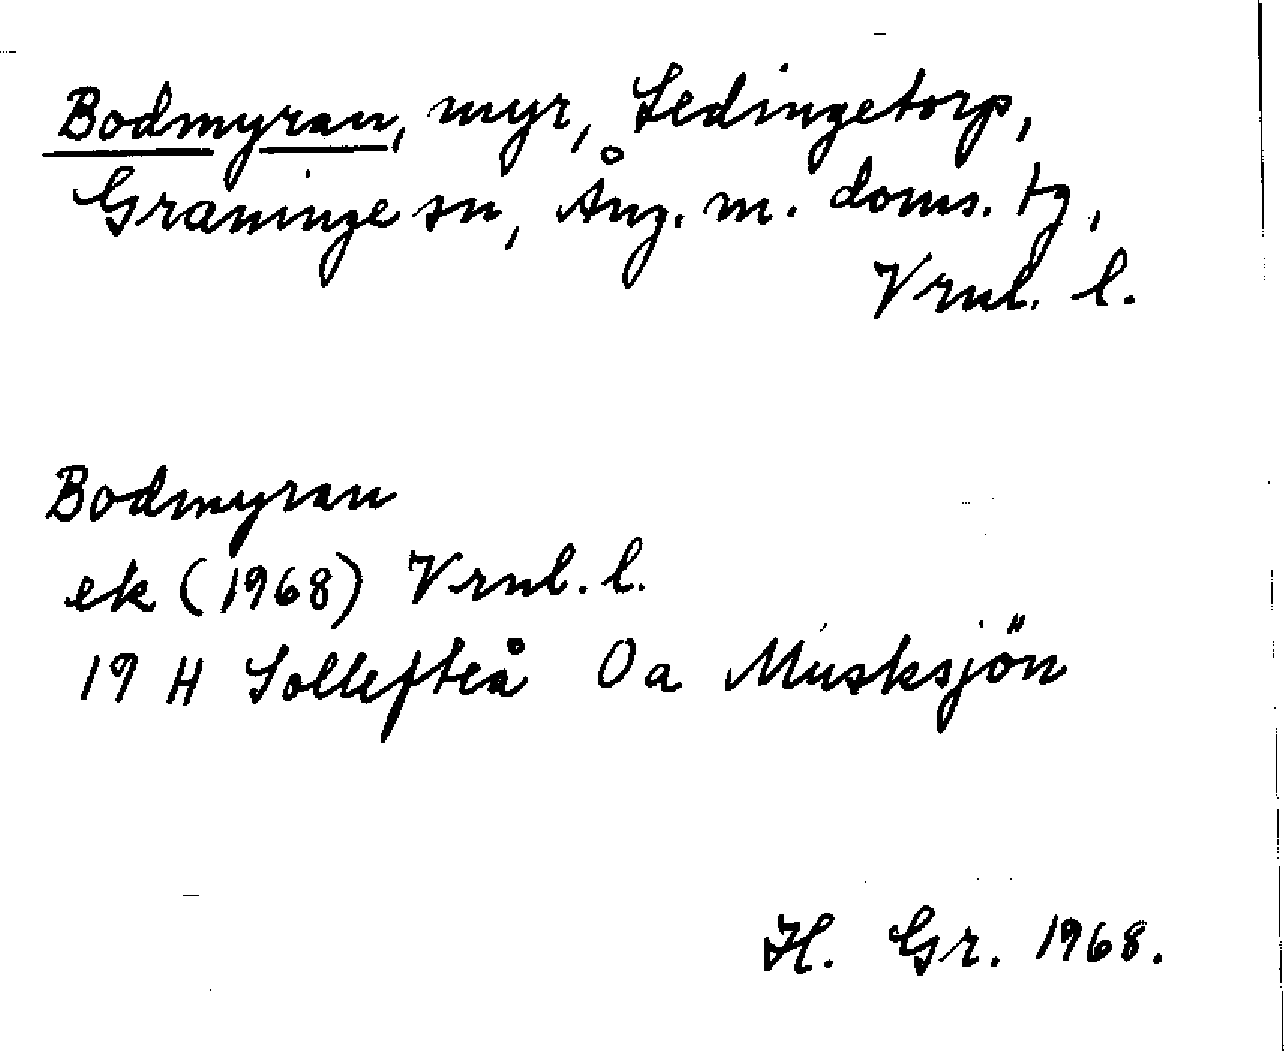 Bodmyran, myr, Sedingetorp,
Graninge sn, Ång. m. doms. tg,
Vrnl. l.
Bodmyran
ek (1968) Vrnl. l.
19 H Sollefteå Oa Musksjön
H. Gr. 1968.